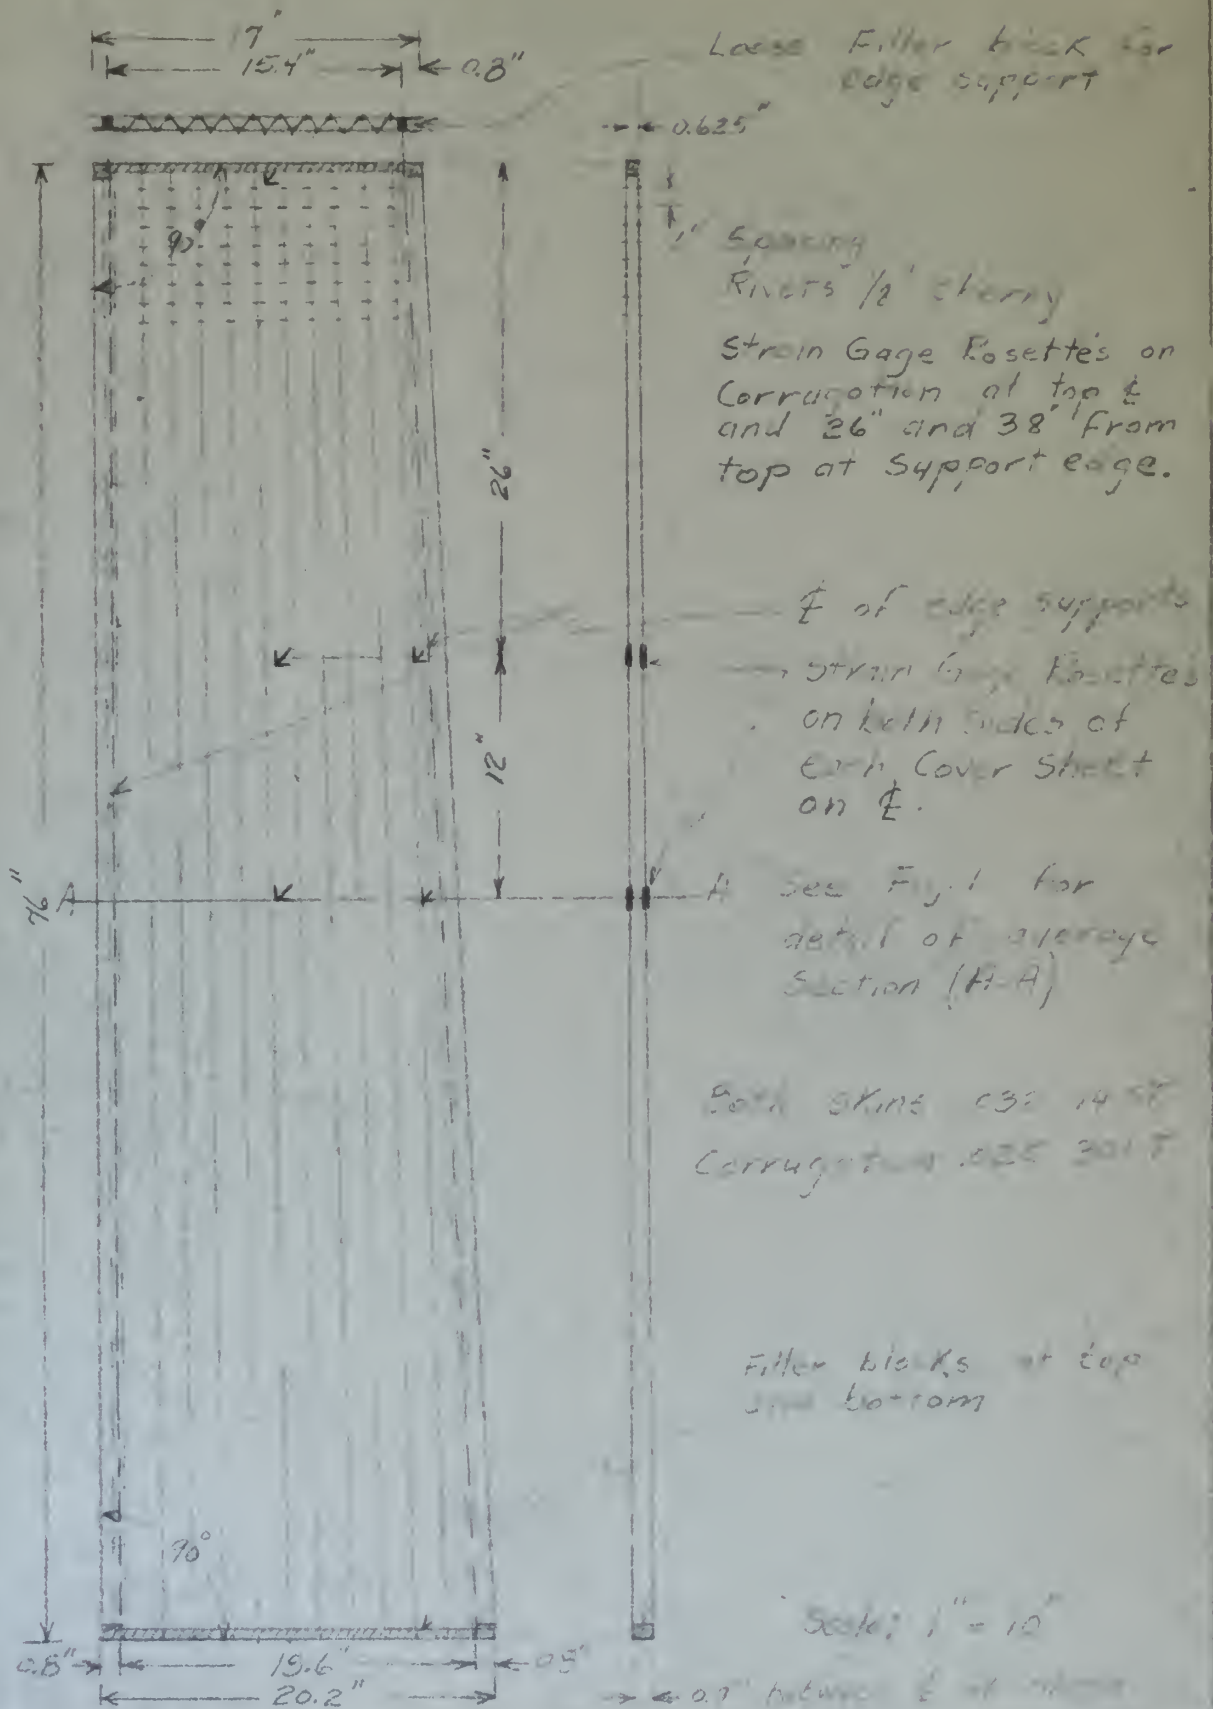 17"
15.4"
0.8"
Loose Filler block for
edge support
0.625"
90°
1" Spacing
Rivets 1/2" Cherry
Strain Gage Rosettes on
Corrugation at top ℄
and 26" and 38" From
top at Support edge.
26"
℄ of edge supports
Strain Gage Rosettes
on both sides of
Each Cover Sheet
on ℄.
12"
76"
A
A
See Fig. 1 for
detail of average
Section (A-A)
Both Skins
Corrugation .025 301T
Filler blocks at top
and bottom
90°
Scale: 1" = 10"
0.8"
19.6"
20.2"
between ℄ of